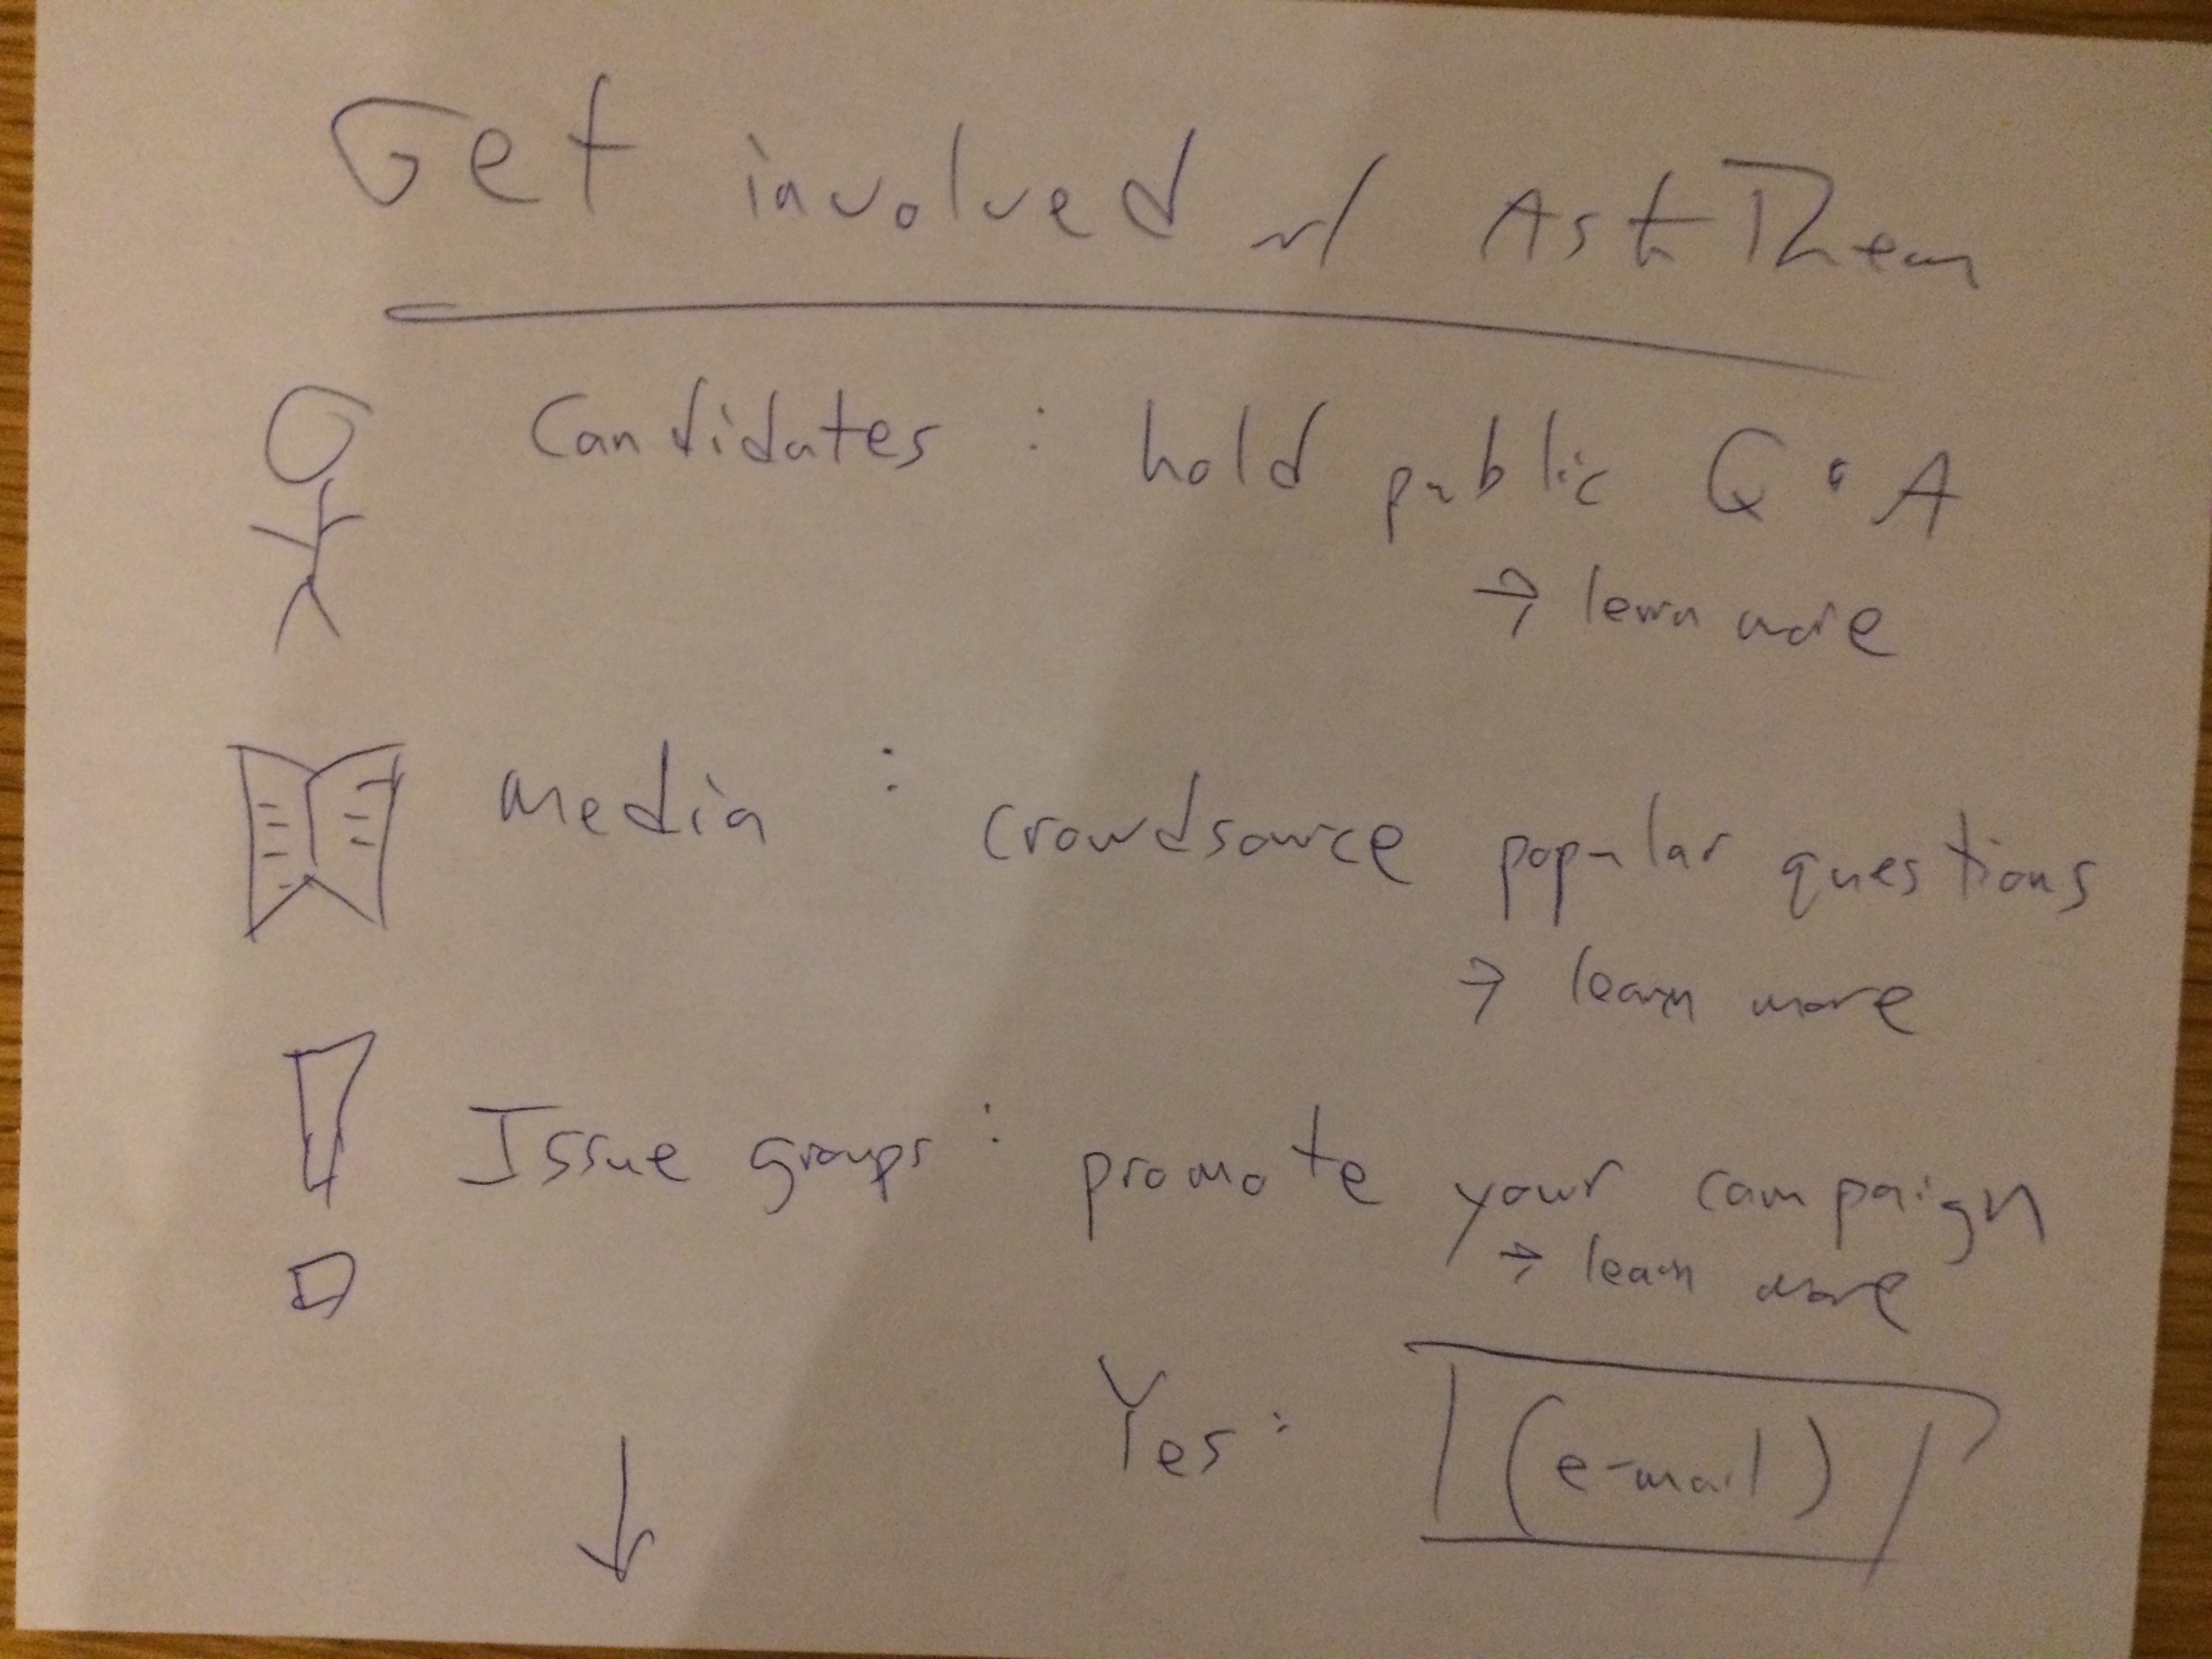 Get involved w/ AskThem
Candidates : hold public Q & A
→ learn more
Media : crowdsource popular questions
→ learn more
Issue groups : promote your campaign
→ learn more
Yes: (e-mail)